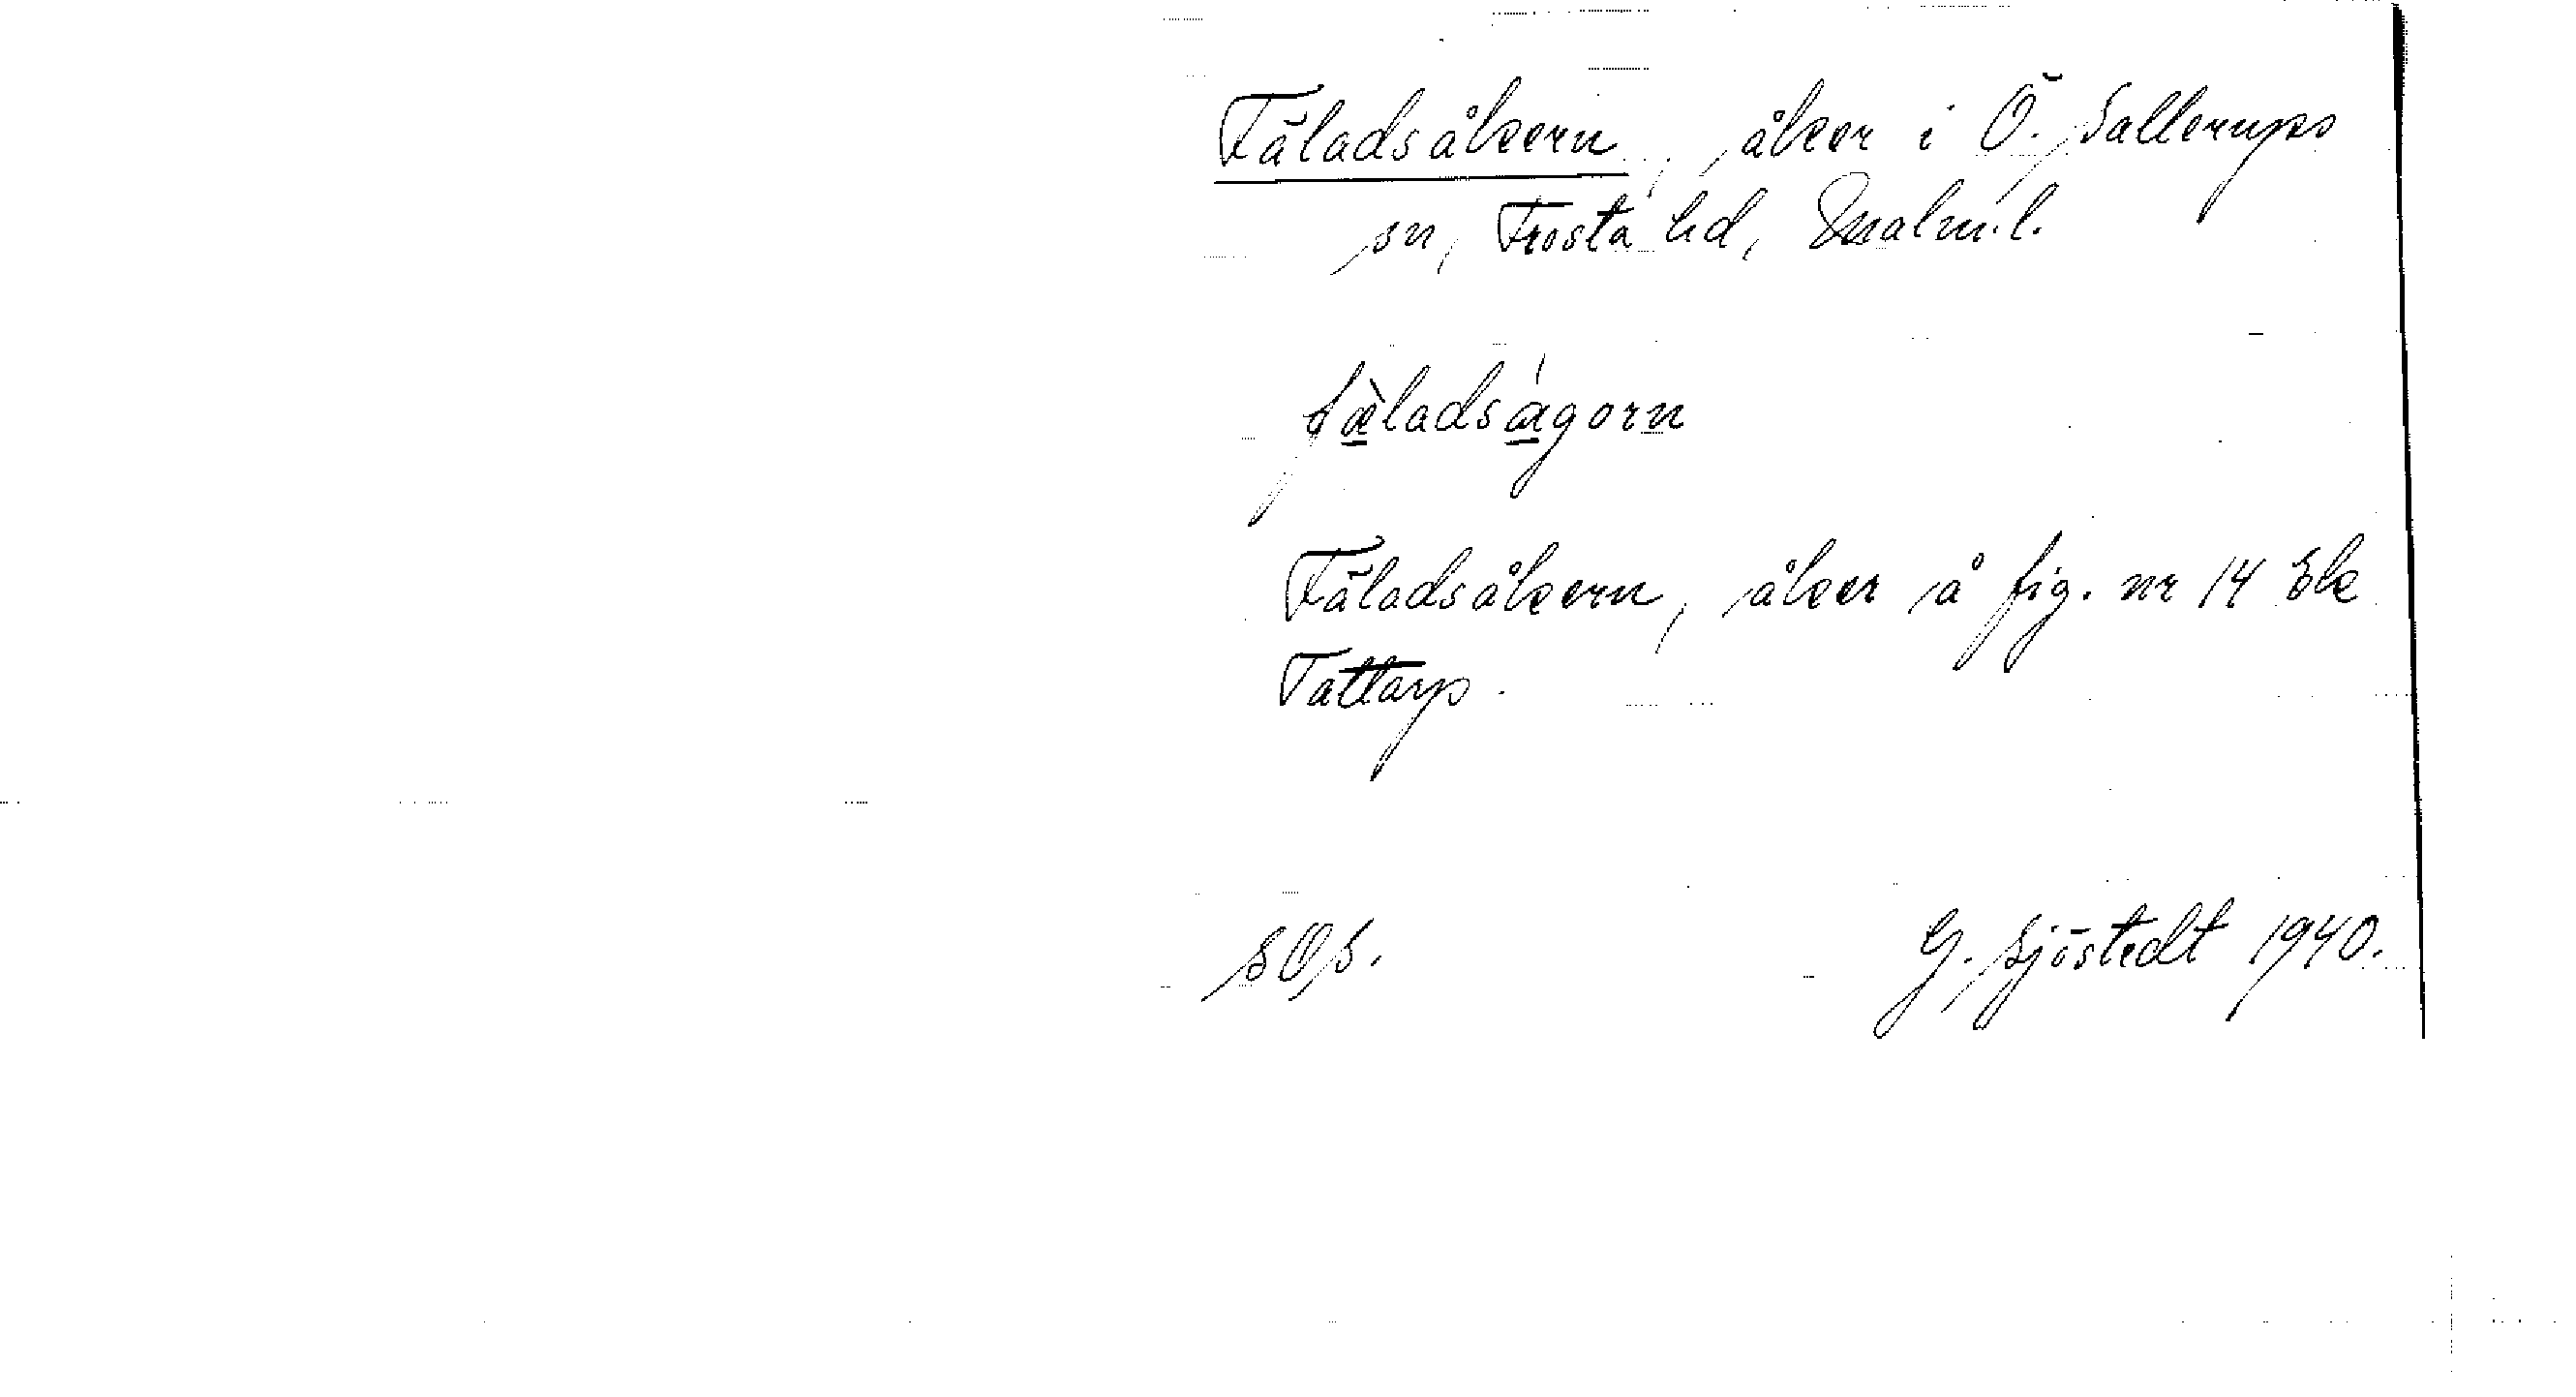 Fäladsåkern, åker i Ö. Sallerups
sn, Frosta hd, Malm. l.
fæ̀ladságorn
Fäladsåkern, åker å fig. nr 14 Ek
Tattarp.
SOS.
G. Sjöstedt 1940.